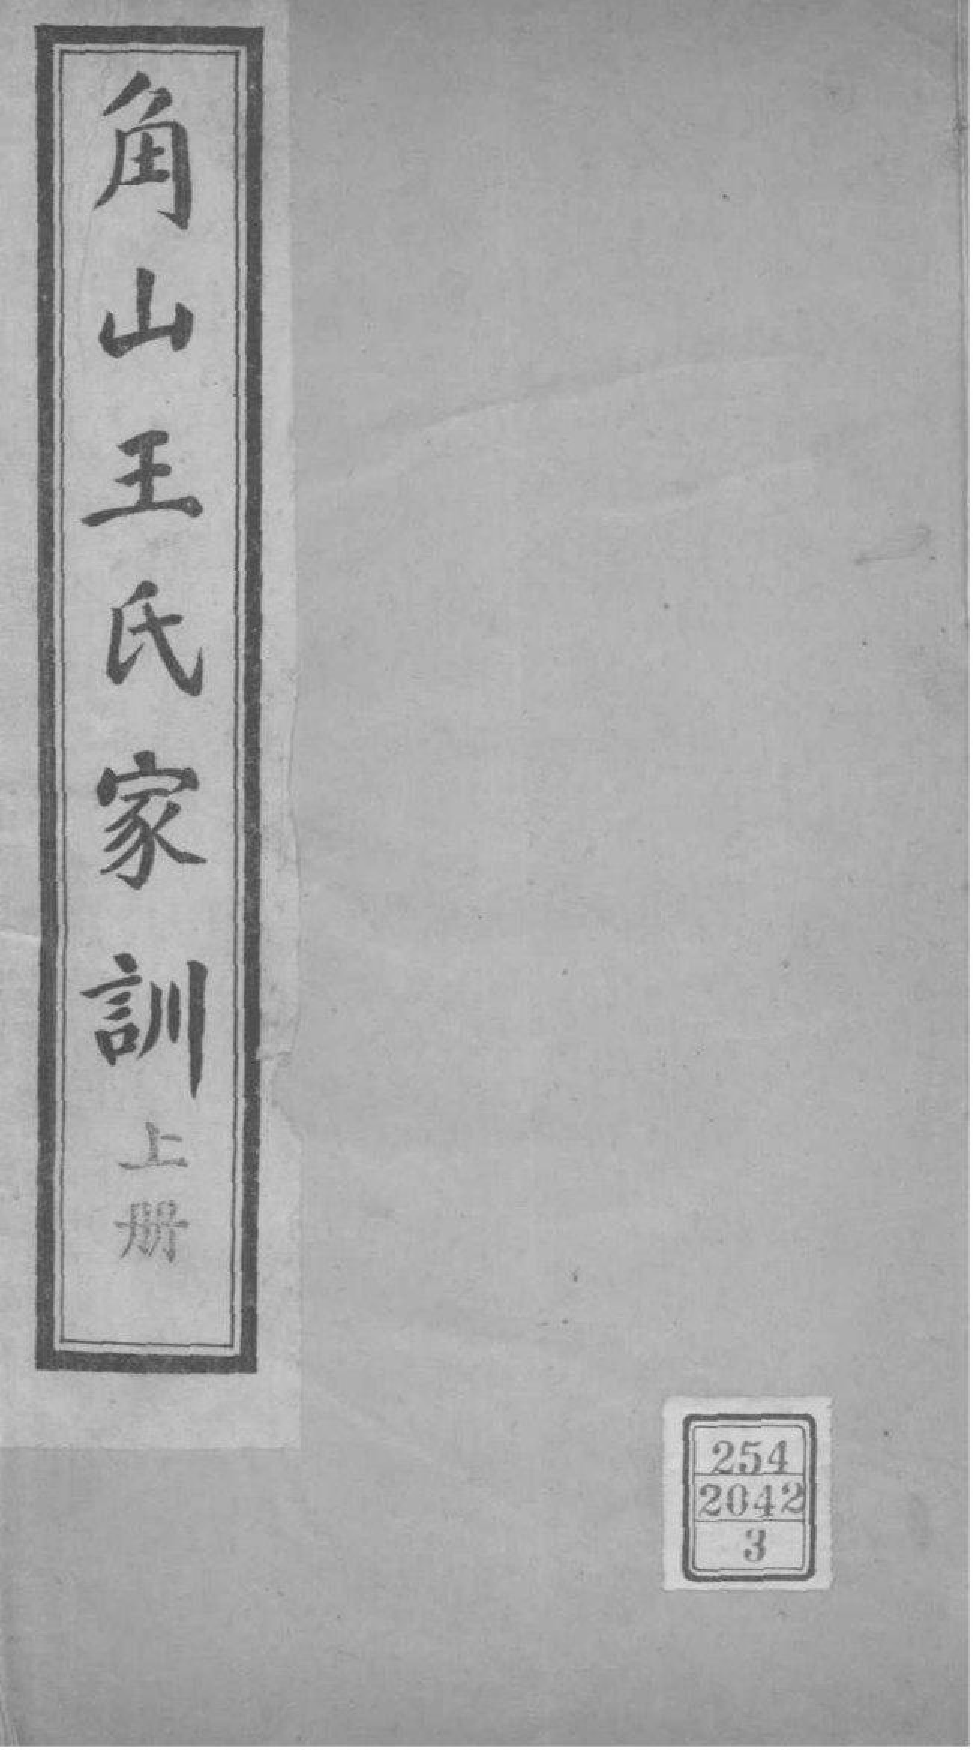 角山王氏家訓
上册
254
2042
3